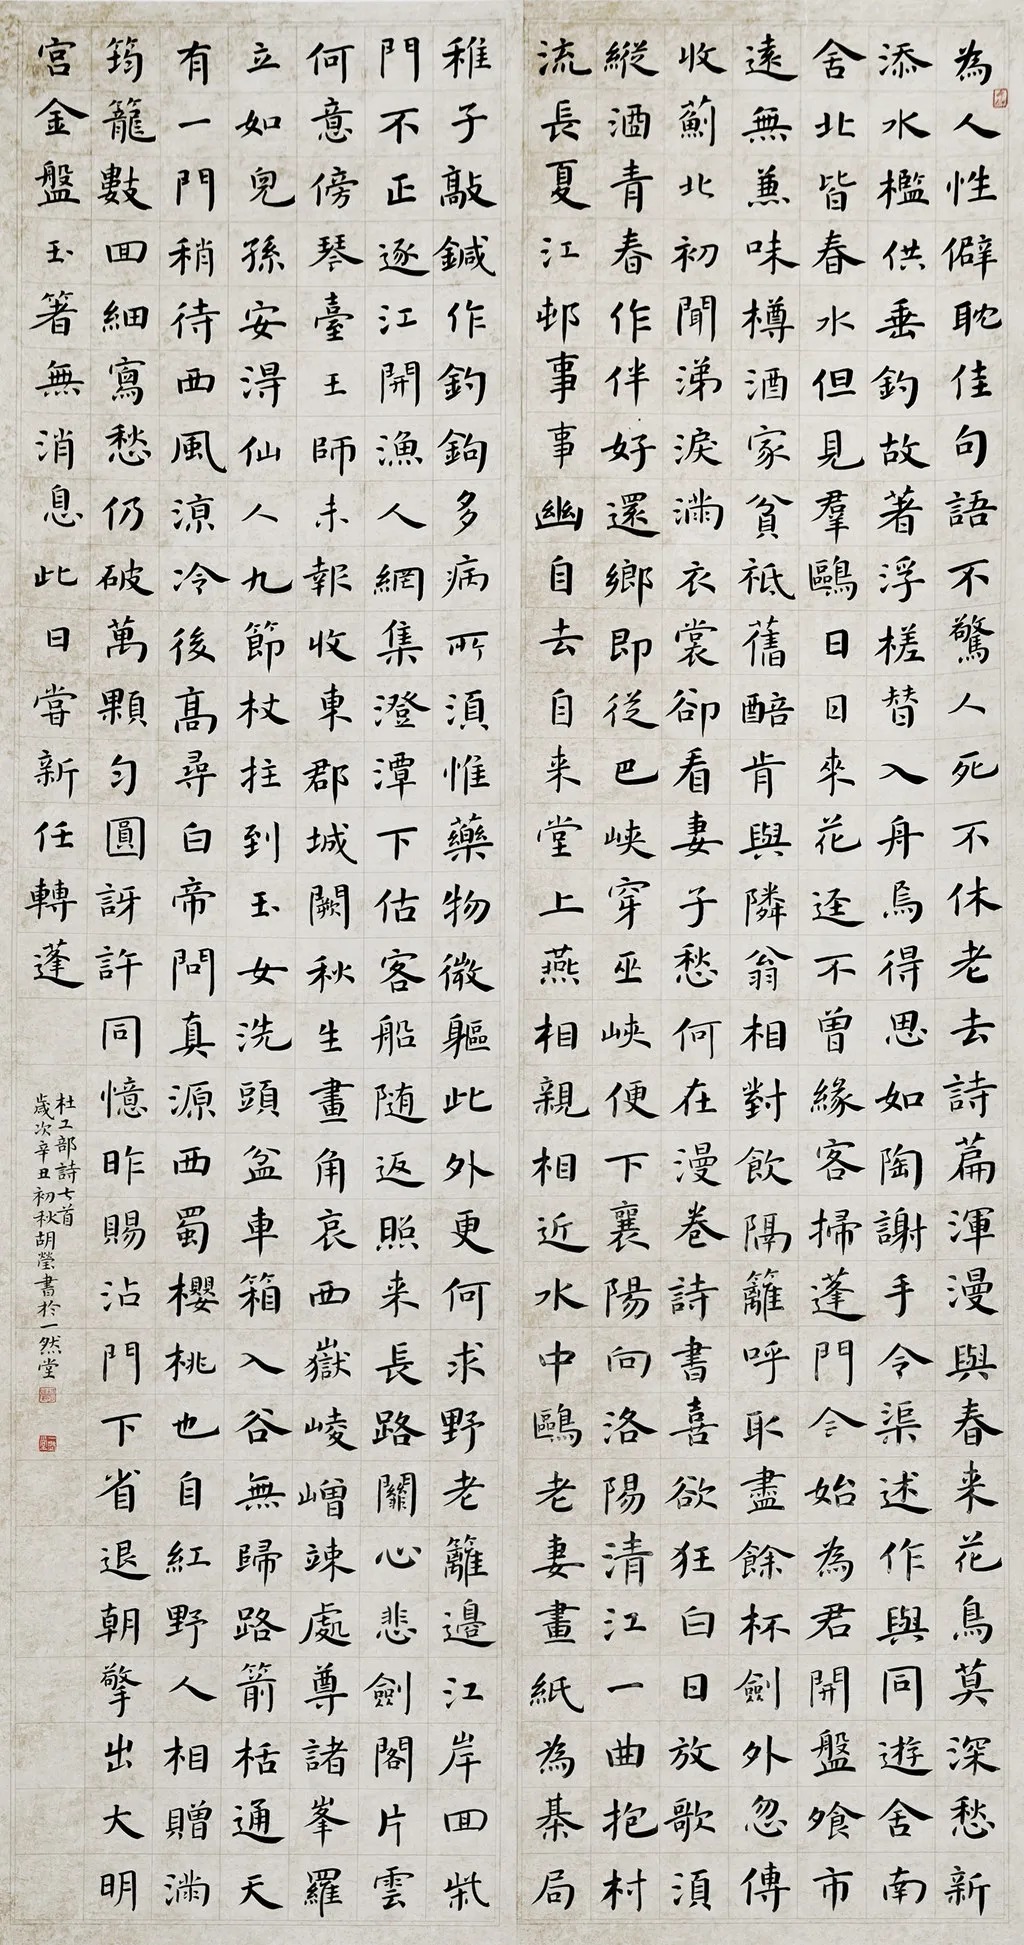 為人性僻耽佳句語不驚人死不休老去詩篇渾漫與春来花鳥莫深愁新
添水檻供垂釣故著浮槎替入舟焉得思如陶謝手令渠述作與同遊舍南
舍北皆春水但見羣鷗日日來花逕不曾緣客掃蓬門今始為君開盤飧市
遠無兼味樽酒家貧祗舊醅肯與隣翁相對飲隔籬呼取盡餘杯劍外忽傳
收薊北初聞涕淚滿衣裳卻看妻子愁何在漫卷詩書喜欲狂白日放歌須
縱酒青春作伴好還鄉即從巴峽穿巫峽便下襄陽向洛陽清江一曲抱村
流長夏江邨事事幽自去自来堂上燕相親相近水中鷗老妻畫紙為棊局
稚子敲鍼作釣鉤多病所須惟藥物微軀此外更何求野老籬邊江岸回柴
門不正逐江開漁人網集澄潭下估客船随返照来長路關心悲劍閣片雲
何意傍琴臺王師未報收東郡城闕秋生畫角哀西嶽崚嶒竦處尊諸峯羅
立如兒孫安得仙人九節杖拄到玉女洗頭盆車箱入谷無歸路箭栝通天
有一門稍待西風涼冷後高尋白帝問真源西蜀櫻桃也自紅野人相贈滿
筠籠數回細寫愁仍破萬顆勻圓訝許同憶昨賜沾門下省退朝擎出大明
宮金盤玉箸無消息此日嘗新任轉蓬
杜工部詩七首
歲次辛丑初秋胡瑩書於一然堂